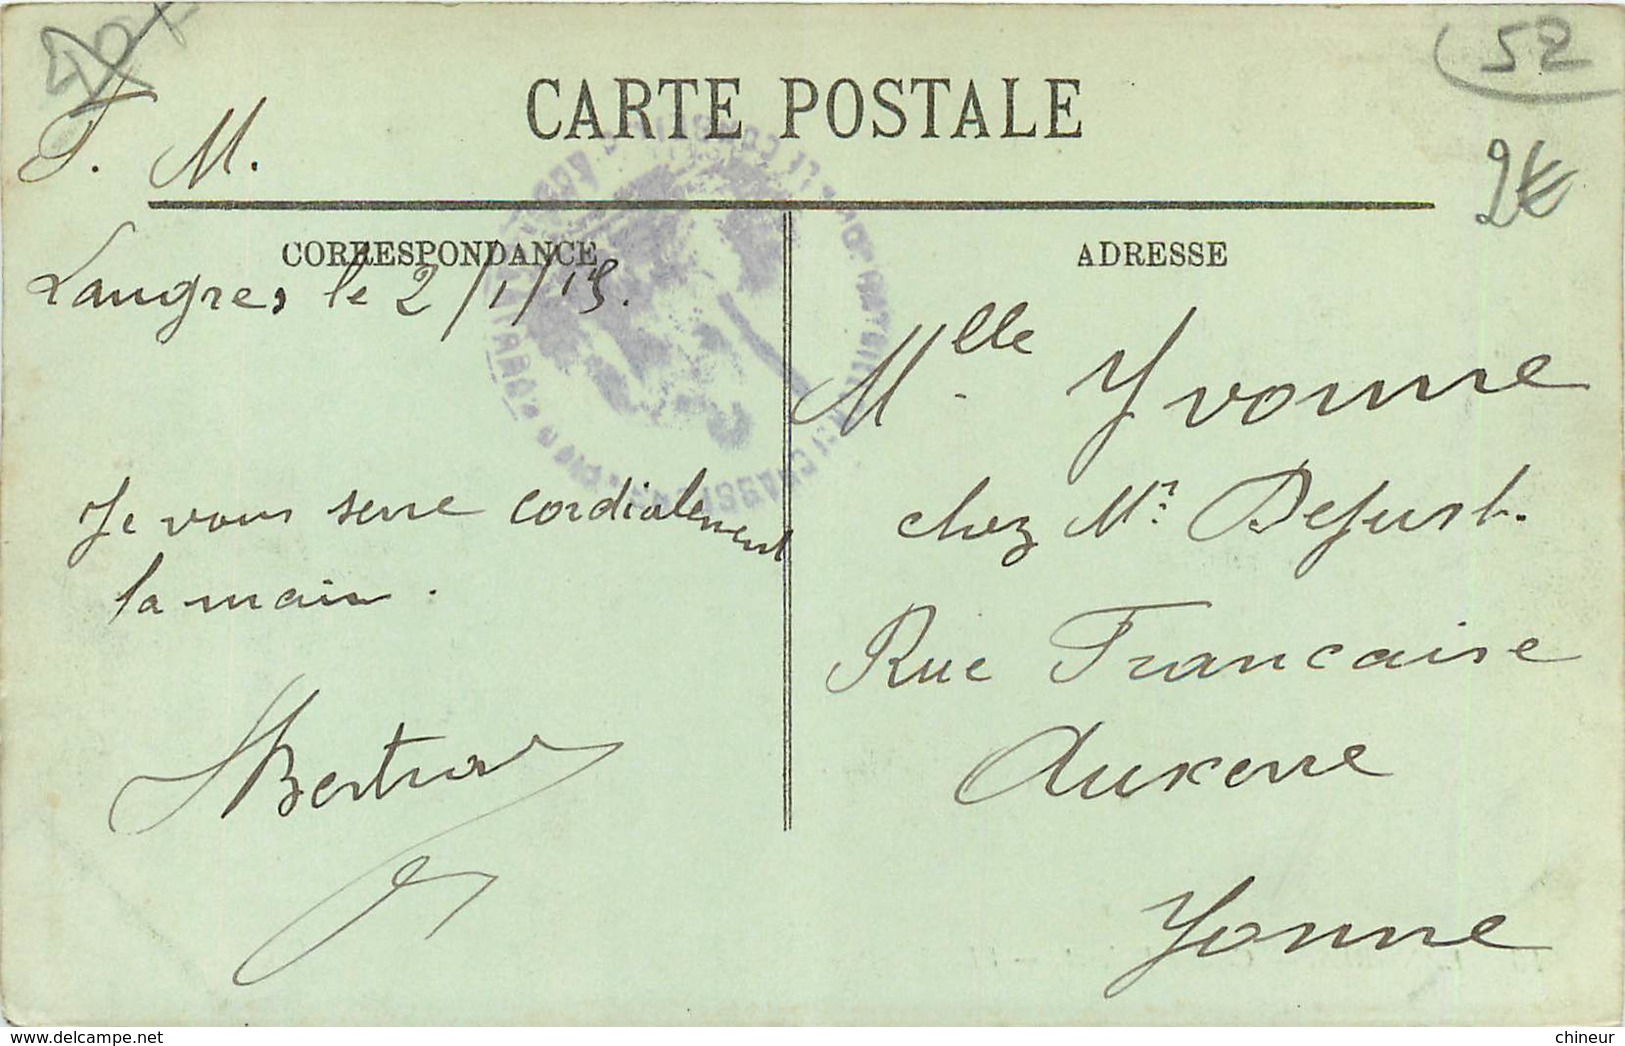 52
CARTE POSTALE
F. M.
2€
CORRESPONDANCE
ADRESSE
Langres, le 2/1/15.
Mlle Yvonne
Je vous serre cordialement
la main.
chez Mr. Dejust.
Rue Francaise
Auxerre
Yonne
www.delcampe.net
chineur